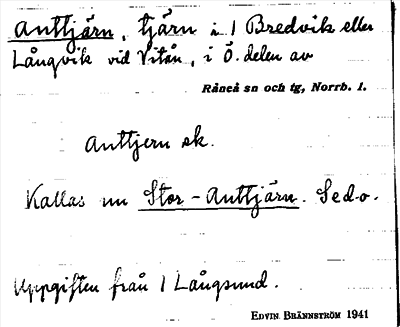 Anttjärn, tjärn i 1 Bredvik eller
Långvik vid Vitån, i Ö. delen av
Råneå sn och tg, Norrb. l.
Anttjern sk.
Kallas nu Stor-Anttjärn. Se d.o.
Uppgiften från 1 Långsund.
EDVIN BRÄNNSTRÖM 1941